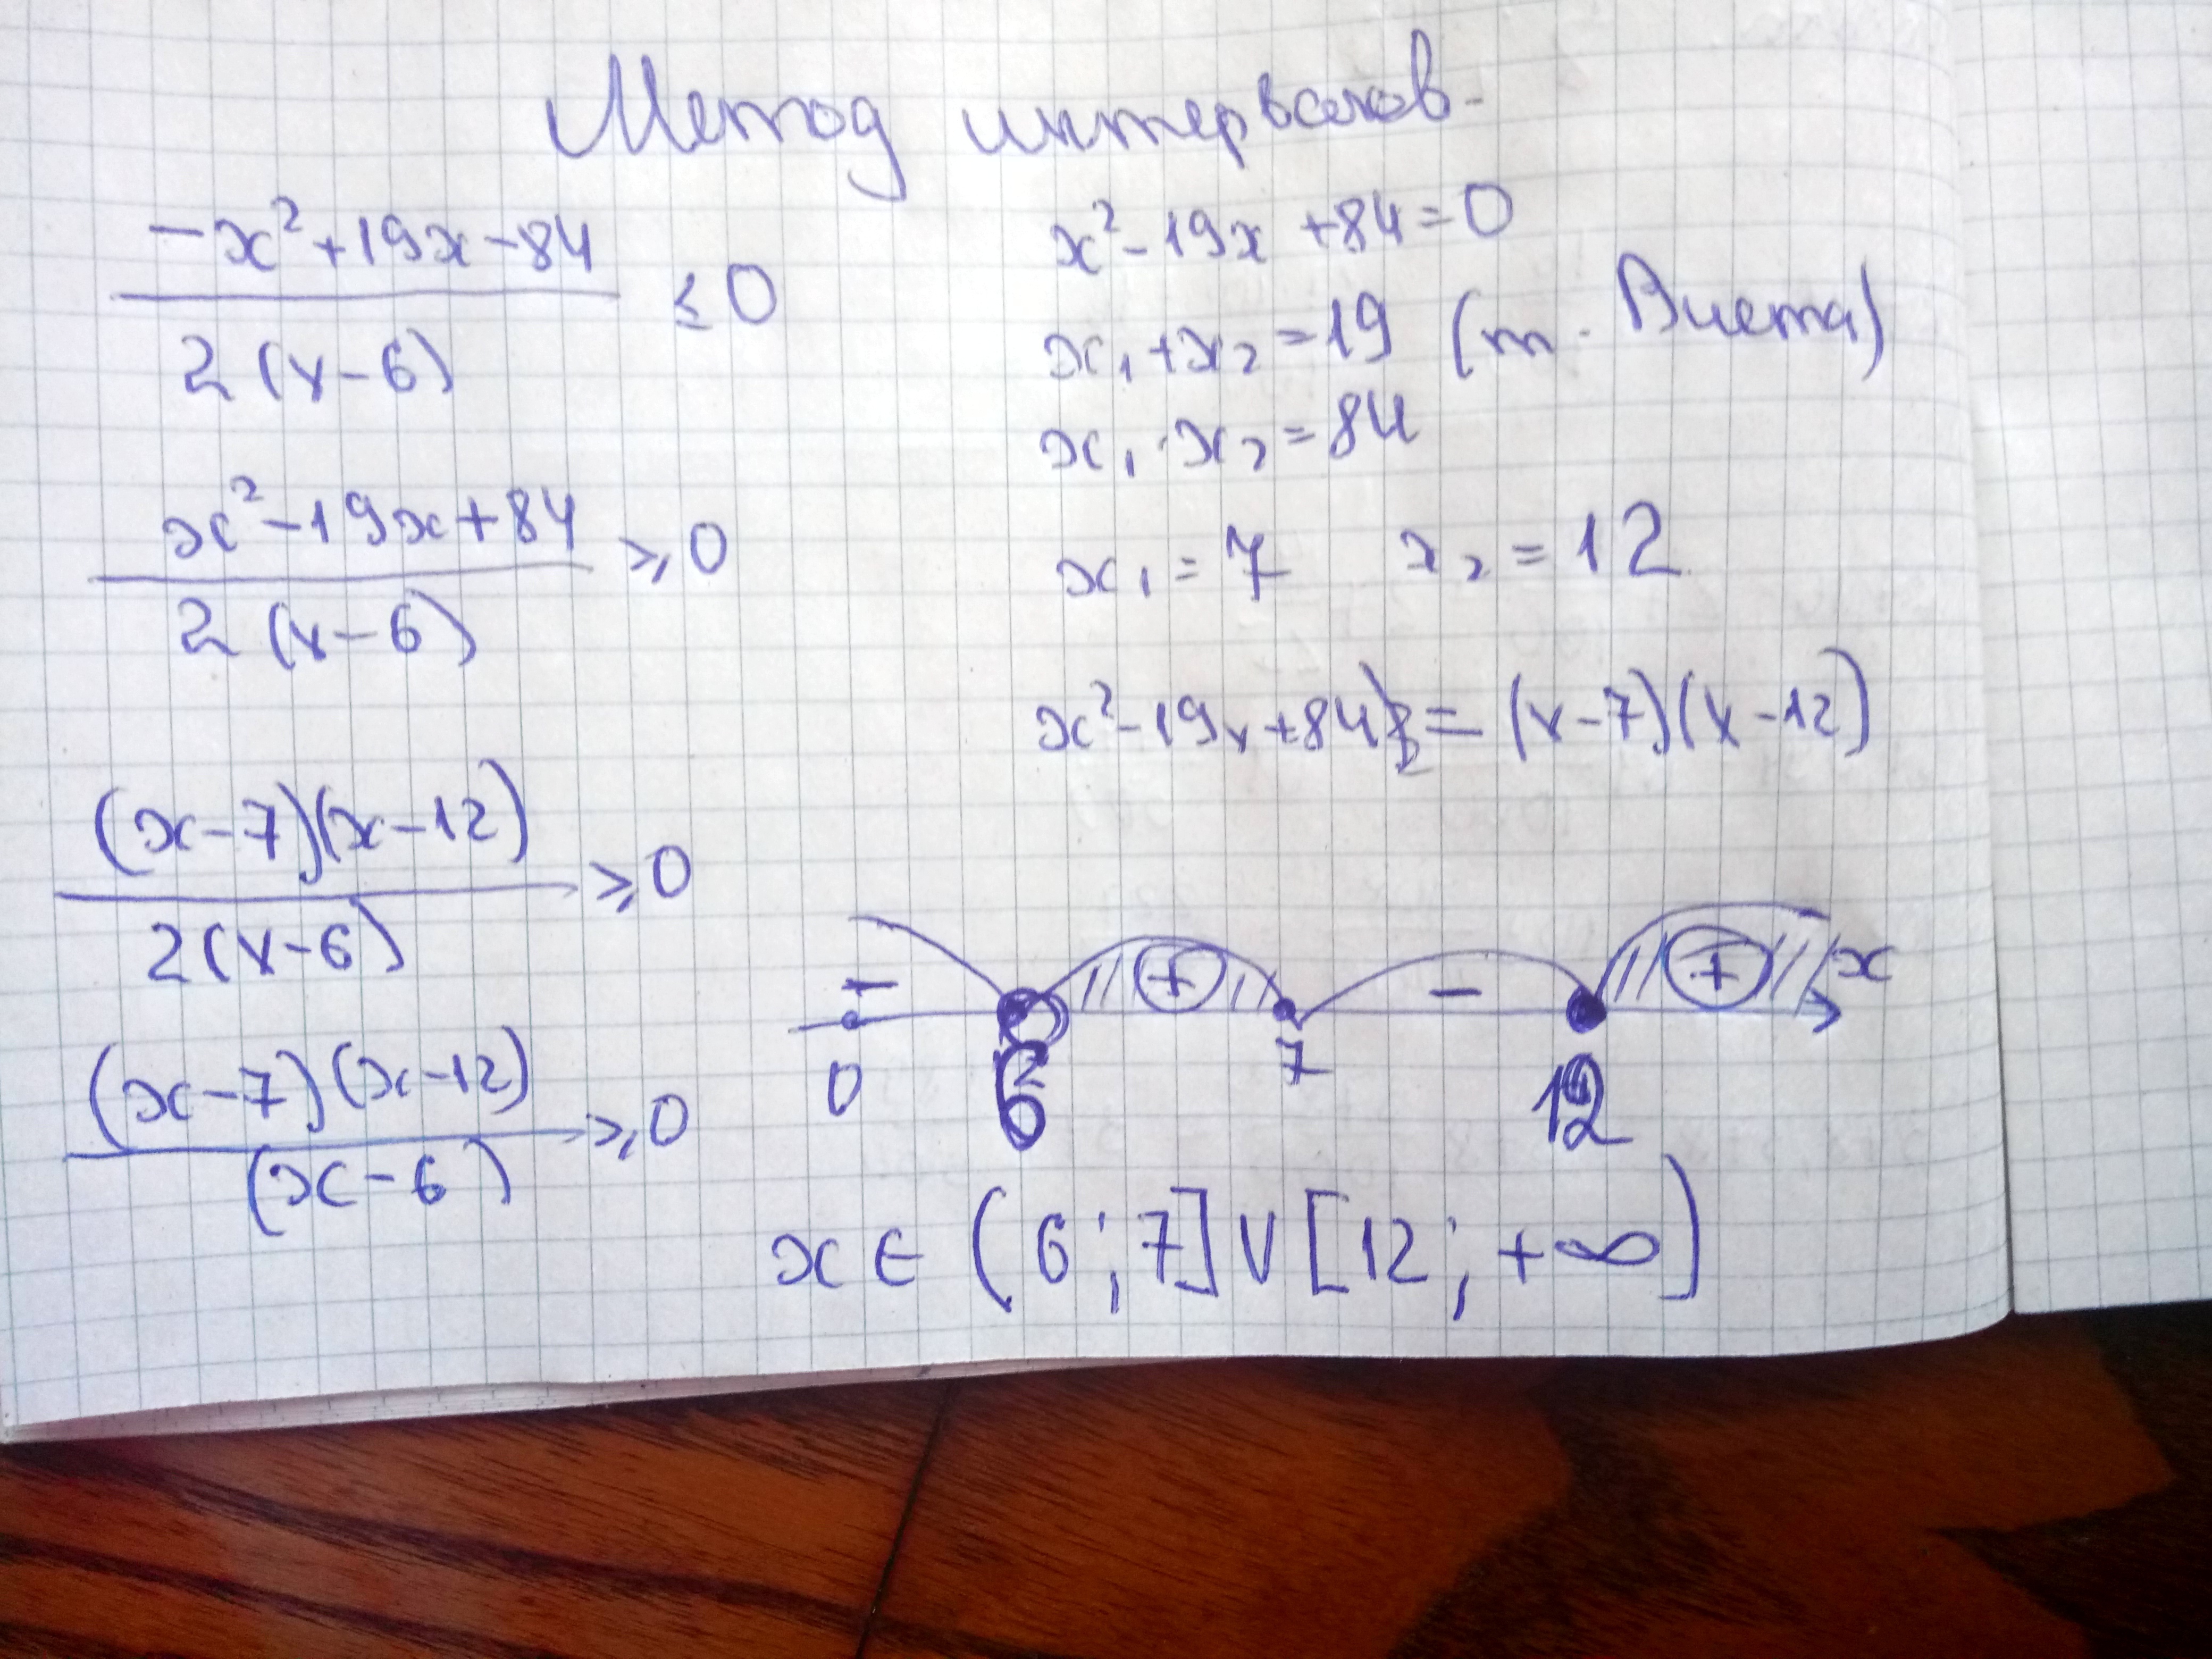 Метод интервалов.
-x²+19x-84 / 2(x-6) ≤ 0
x²-19x+84 / 2(x-6) ≥ 0
(x-7)(x-12) / 2(x-6) ≥ 0
(x-7)(x-12) / (x-6) ≥ 0
x²-19x+84=0
x₁+x₂=19 (т. Виета)
x₁·x₂=84
x₁=7 x₂=12
x²-19x+84=(x-7)(x-12)
- + - + x
0 6 7 12
x∈(6;7]∪[12;+∞)